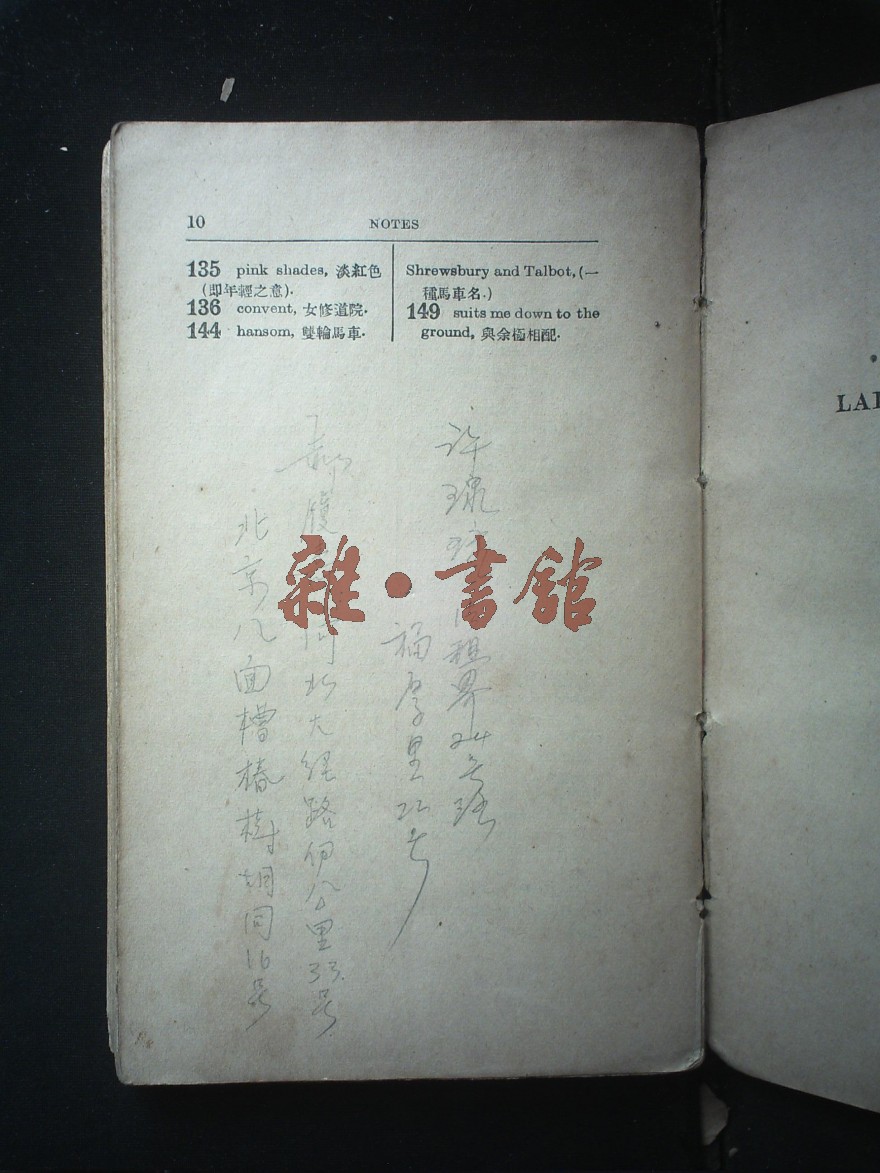 10 NOTES
135 pink shades, 淡紅色
(即年輕之意).
136 convent, 女修道院.
144 hansom, 雙輪馬車.
Shrewsbury and Talbot, (一
種馬車名.)
149 suits me down to the
ground, 與余極相配.
许
租界24号路
福厚里22号
河北大经路伊公里33号
北京八面槽椿樹胡同16号
雜·書館
LAD